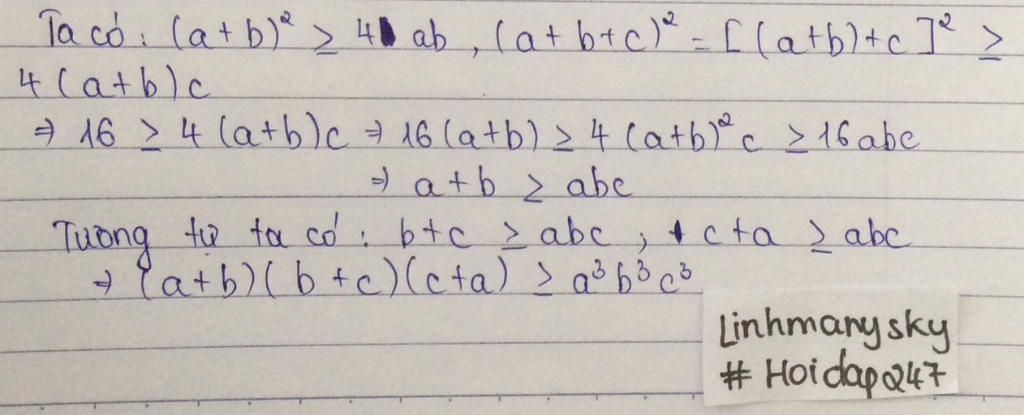 Ta có : (a+b)² ≥ 4 ab , (a+b+c)² = [(a+b)+c]² ≥
4(a+b)c
⇒ 16 ≥ 4(a+b)c ⇒ 16(a+b) ≥ 4(a+b)²c ≥ 16abc
⇒ a+b ≥ abc
Tương tự ta có : b+c ≥ abc ; c+a ≥ abc
⇒ (a+b)(b+c)(c+a) ≥ a³b³c³
Linhmanysky
# Hoidap247